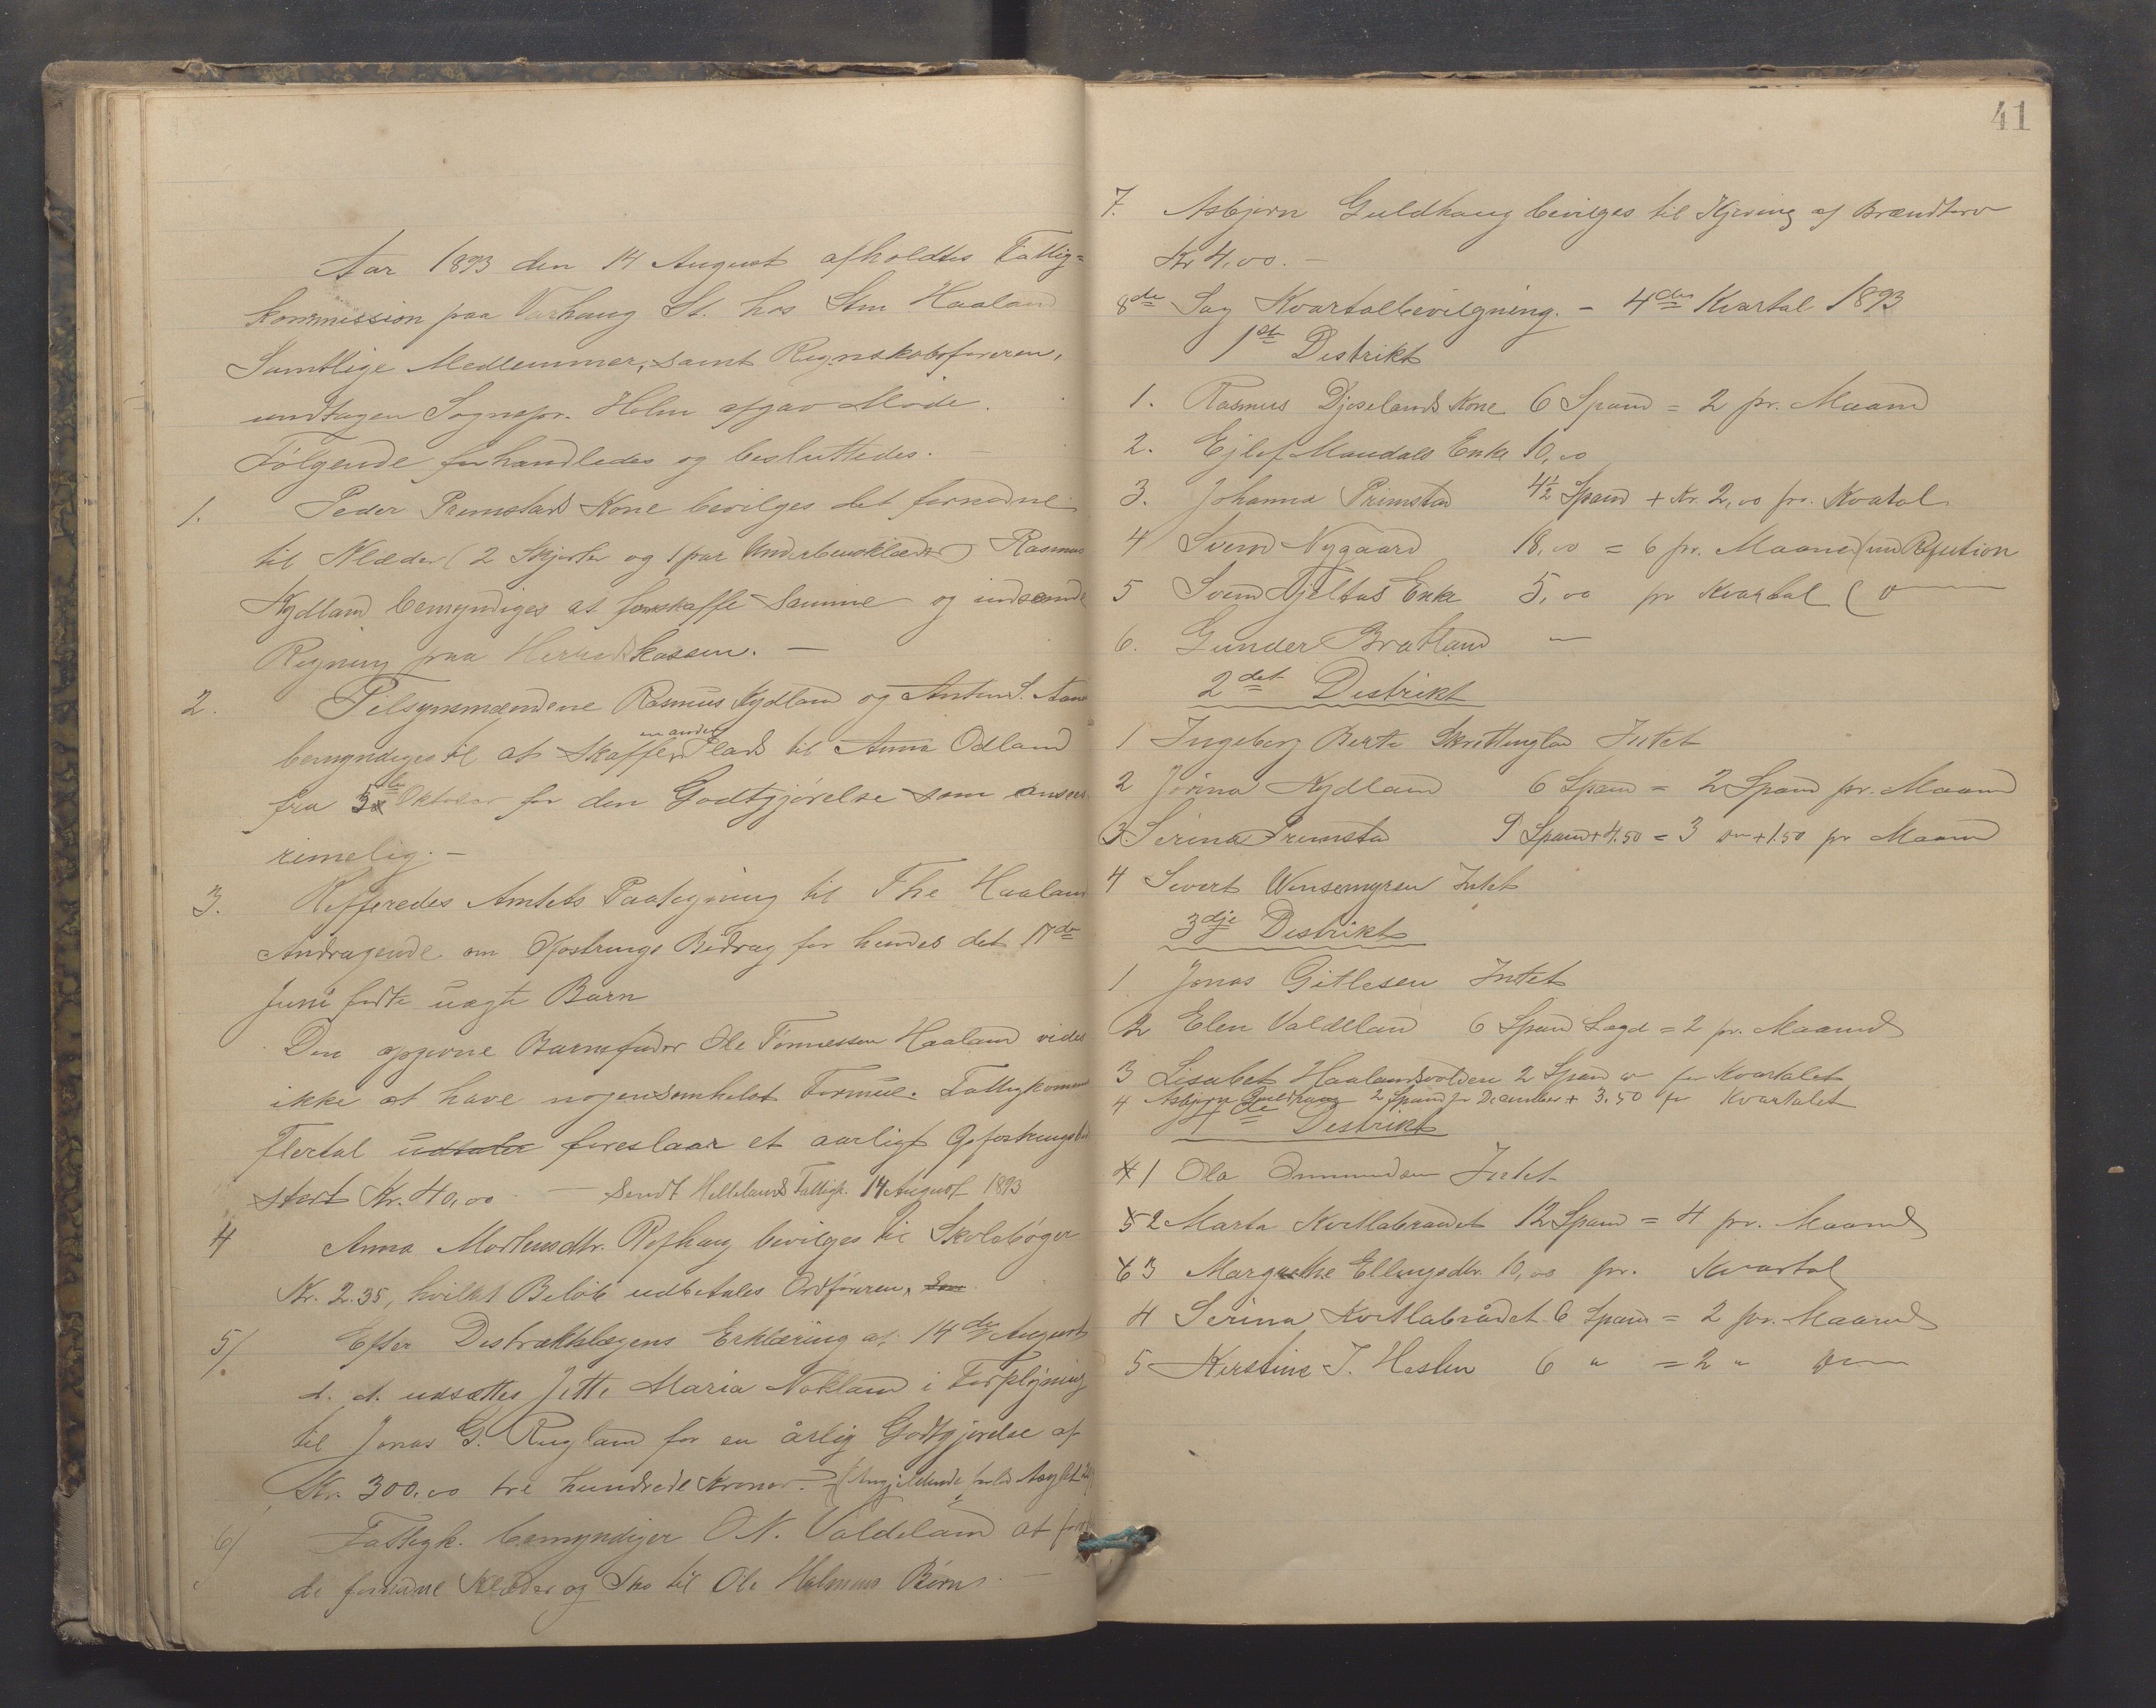 Aar 1893 den 14 August afholdtes Fattig=
kommission paa Varhaug St. hos Sm Haaland
Samtlige Medlemmer, samt Regnskabsføreren,
undtagen Sognepr. Holm afgav Møde.
Følgende forhandledes og besluttedes. –
1. Peder Premstads Kone bevilges det fornødne
til Klæder (2 Skjorter og 1 par Underbenklæder) Rasmus
Kydland bemyndiges at forskaffe samme og indsende
Regning paa Herredskassen. –
2. Tilsynsmændene Rasmus Kydland og Anton S. Aane
en anden
bemyndiges til at skaffe Plads til Anna Odland
fra Oktober for den Godtgjørelse som ansees
rimelig. –
3. Refferedes Amtets Paategning til The Haaland
Andragende om Opfostrings Bidrag for hendes det 17de
Juni fødte uægte Barn
Den opgivne Barnefader Ole Tønnessen Haaland vides
ikke at have nogensomhelst Formue. Fattigkomm
Flertal udtaler foreslaar et aarligt Opfostringsbi
stort Kr. 40,00 – Sendt Hellelands Fattigk. 14 August 1893
4 Anna Mortensdtr. Refhaug bevilges til Skolebøger
Kr. 2.35, hvilket Beløb udbetales Ordføreren,
5/. Efter Distriktslægens Erklæring af 14de August
d. A. udsættes Jette Maria Nokland i Forplejning
til Jonas G. Rugland for en årlig Godtgjørelse af
Kr. 300.00 tre hundrede Kroner.
6/ Fattigk. bemyndiger O. N. Valdeland at
de fornødne Klæder og Sko til Ole Holmens Børn. –
41
7. Asbjørn Guldhaug bevilges til Kjøring af Brændtorv
Kr 4,00. –
8de Sag Kvartalbevilgning. – 4des Kvartal 1893
1ste Distrikt
1. Rasmus Djøselands Kone 6 Spand = 2 pr. Maaned
2. Ejlef Maudals Enke 10,00
3. Johanna Primstad 4½ Spand + Kr. 2,00 pr. Kvatal
4 Svend Nygaard 18,00 = 6 pr. Maaned (mod Refution
5 Svend Fjeltus Enke 5,00 pr Kvartal (
6. Gunder Bratland –
2det Distrikt
1 Ingeborg Berte Skrettingland Intet
2 Jorina Kydland 6 Spand = 2 Spand pr. Maaned
3 Serina Primstad 9 Spand + 4.50 = 3 do + 1.50 pr Maaned
4 Sivert Wensemyren Intet
3dje Distrikt
1 Jonas Gitlesen Intet
2 Elen Valdeland 6 Spand Lagd = 2 pr. Maaned
3 Lisabet Haalandsvolden 2 Spand pr Kvartalet
4 Asbjørn Guldhaug 2 Spand for December + 3.50 for Kvartalet
4de Distrikt
1 Ola Ommundsen Intet
2 Marta Kvitlabrandet 12 Spand = 4 pr. Maaned
3 Margrethe Ellingsdtr. 10,00 pr. Kvartal
4 Serina Kvitlabrådet 6 Spand = 2 pr. Maaned
5 Kirstine J. Haslen 6 " = 2 "